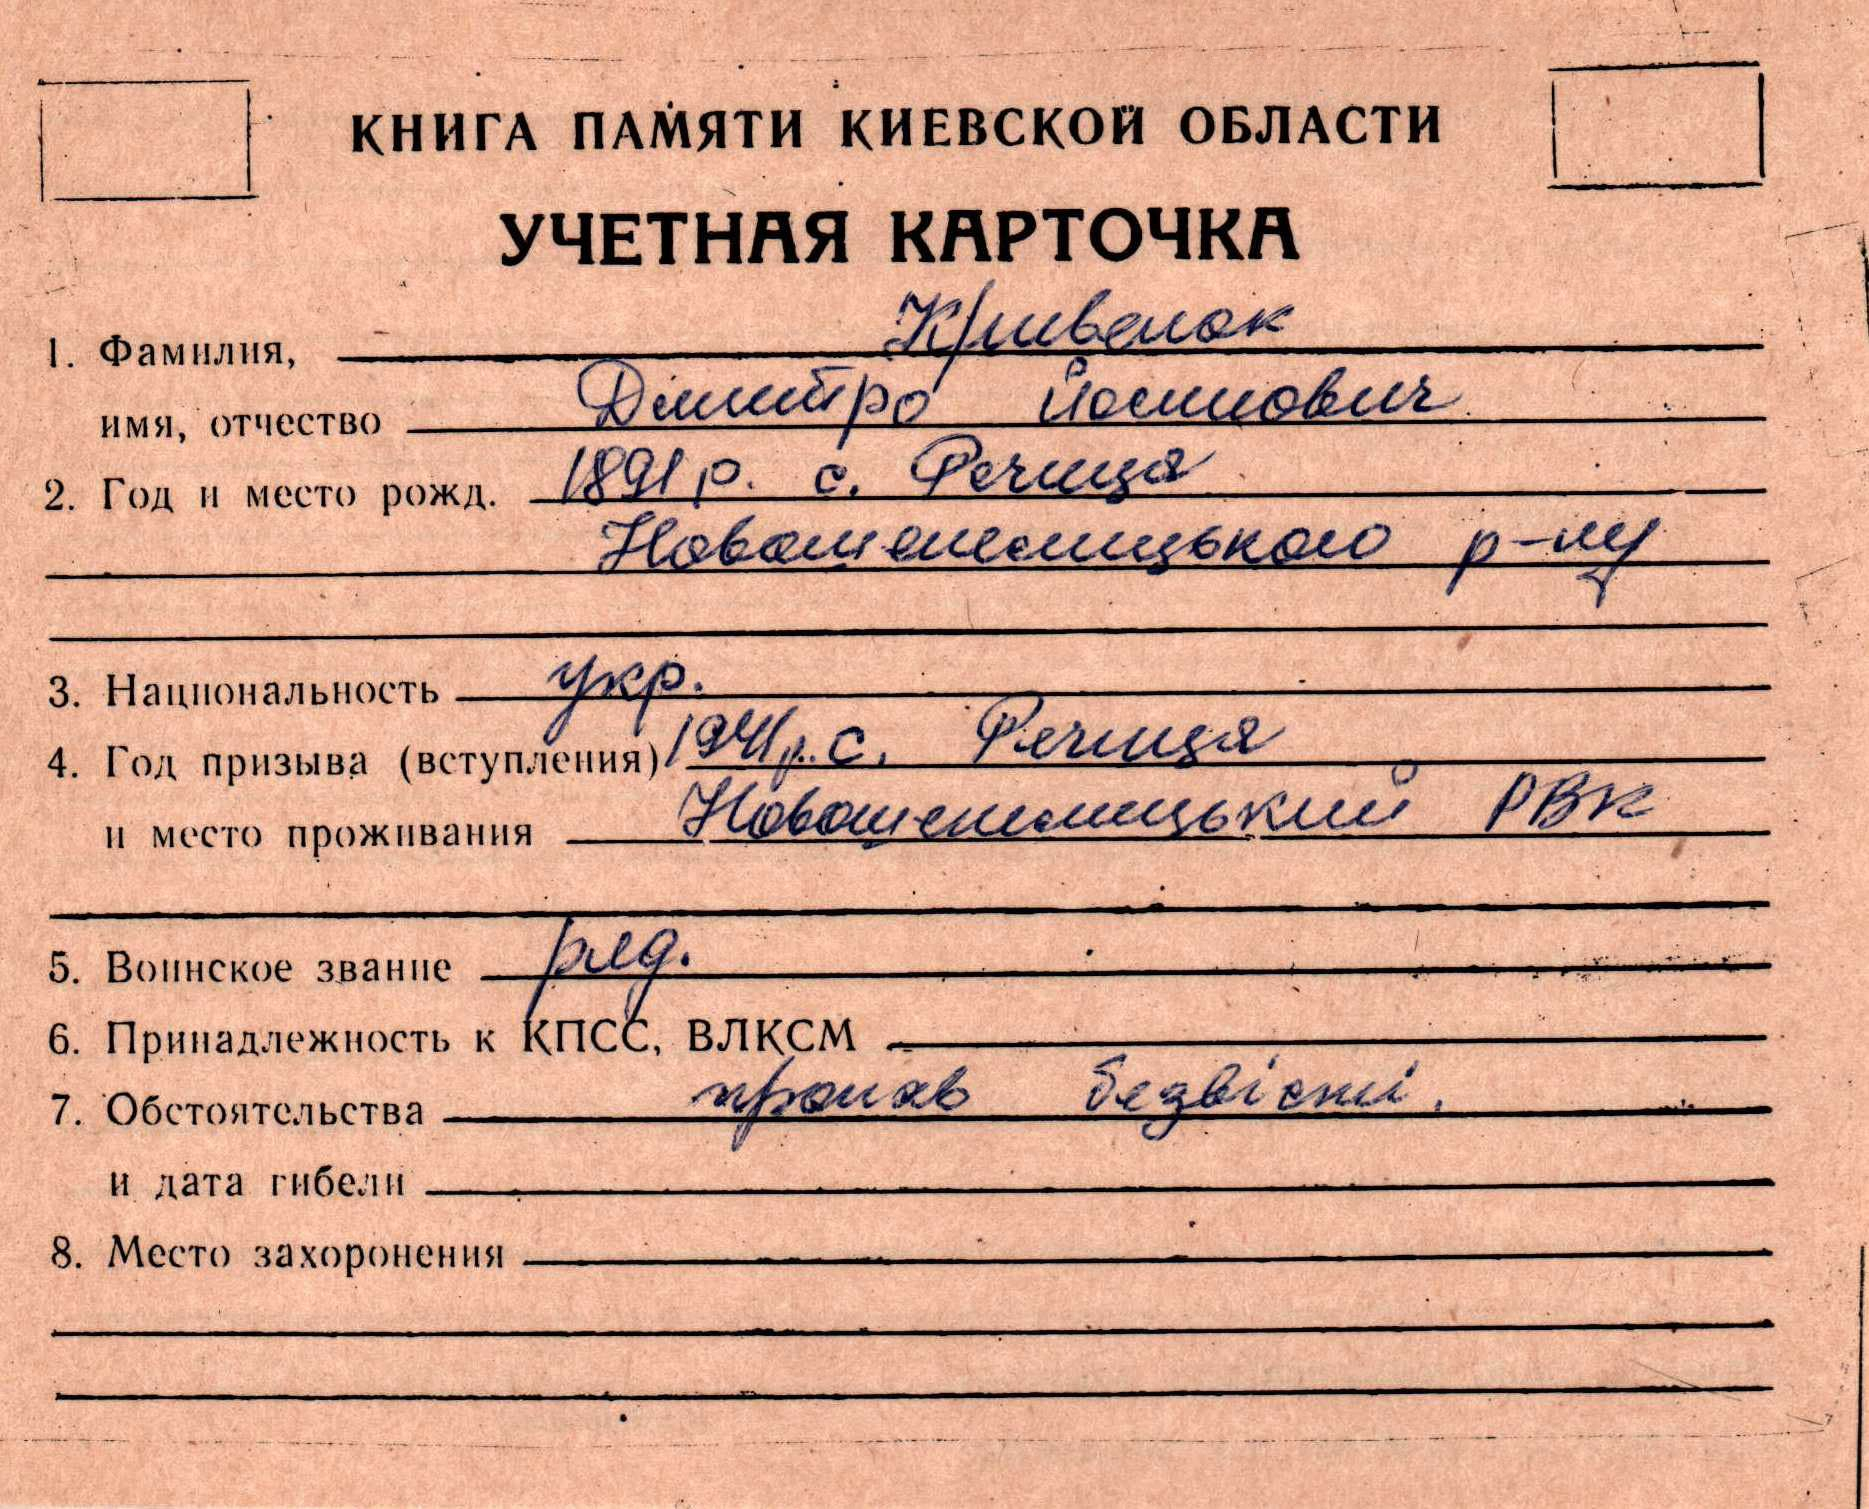 КНИГА ПАМЯТИ КИЕВСКОЙ ОБЛАСТИ
УЧЕТНАЯ КАРТОЧКА
1. Фамилия, Кривенок
имя, отчество Дмитро Йосипович
2. Год и место рожд. 1891 р. с. Речиця
Новошепелицького р-ну
3. Национальность укр.
4. Год призыва (вступления) 1941 р. с. Речиця
и место проживания Новошепелицький РВК
5. Воинское звание ряд.
6. Принадлежность к КПСС, ВЛКСМ
7. Обстоятельства пропав безвісті.
и дата гибели
8. Место захоронения